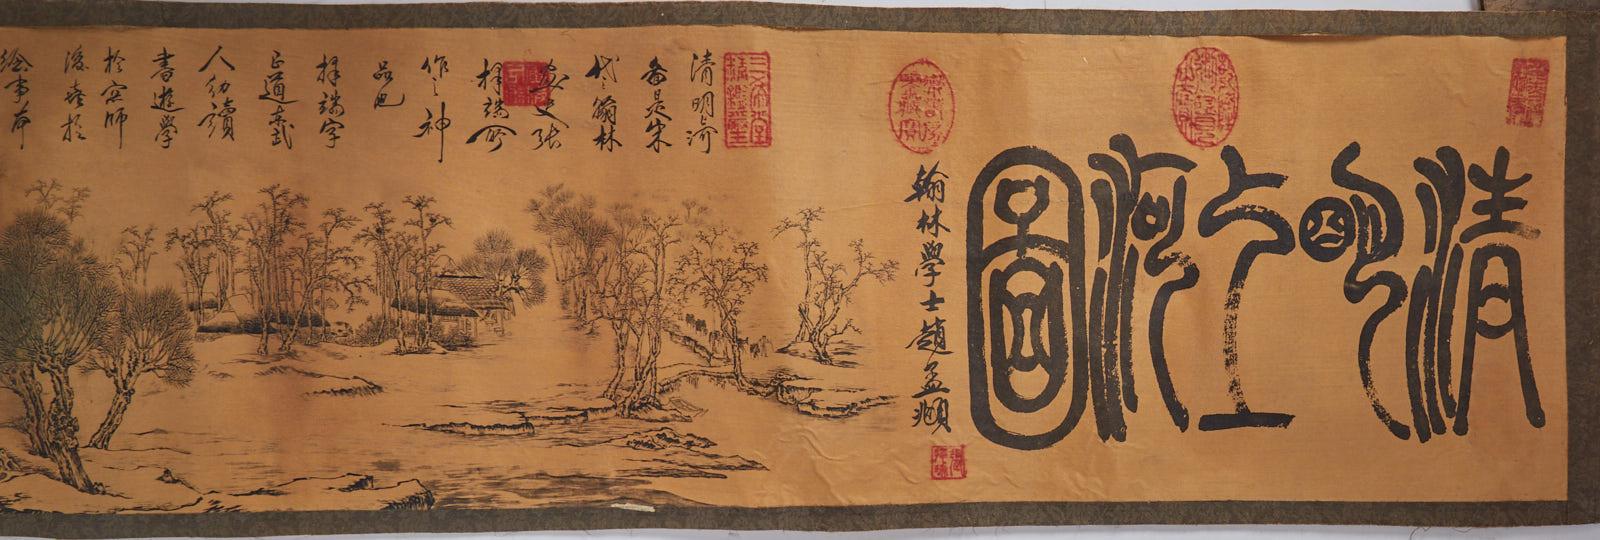 清明上河圖
翰林學士趙孟頫
清明上河
啚是宋
代翰林
畫史張
擇端所
作之神
品也
擇端字
正道東武
人幼讀
書遊學
於京師
後喜於
繪事本